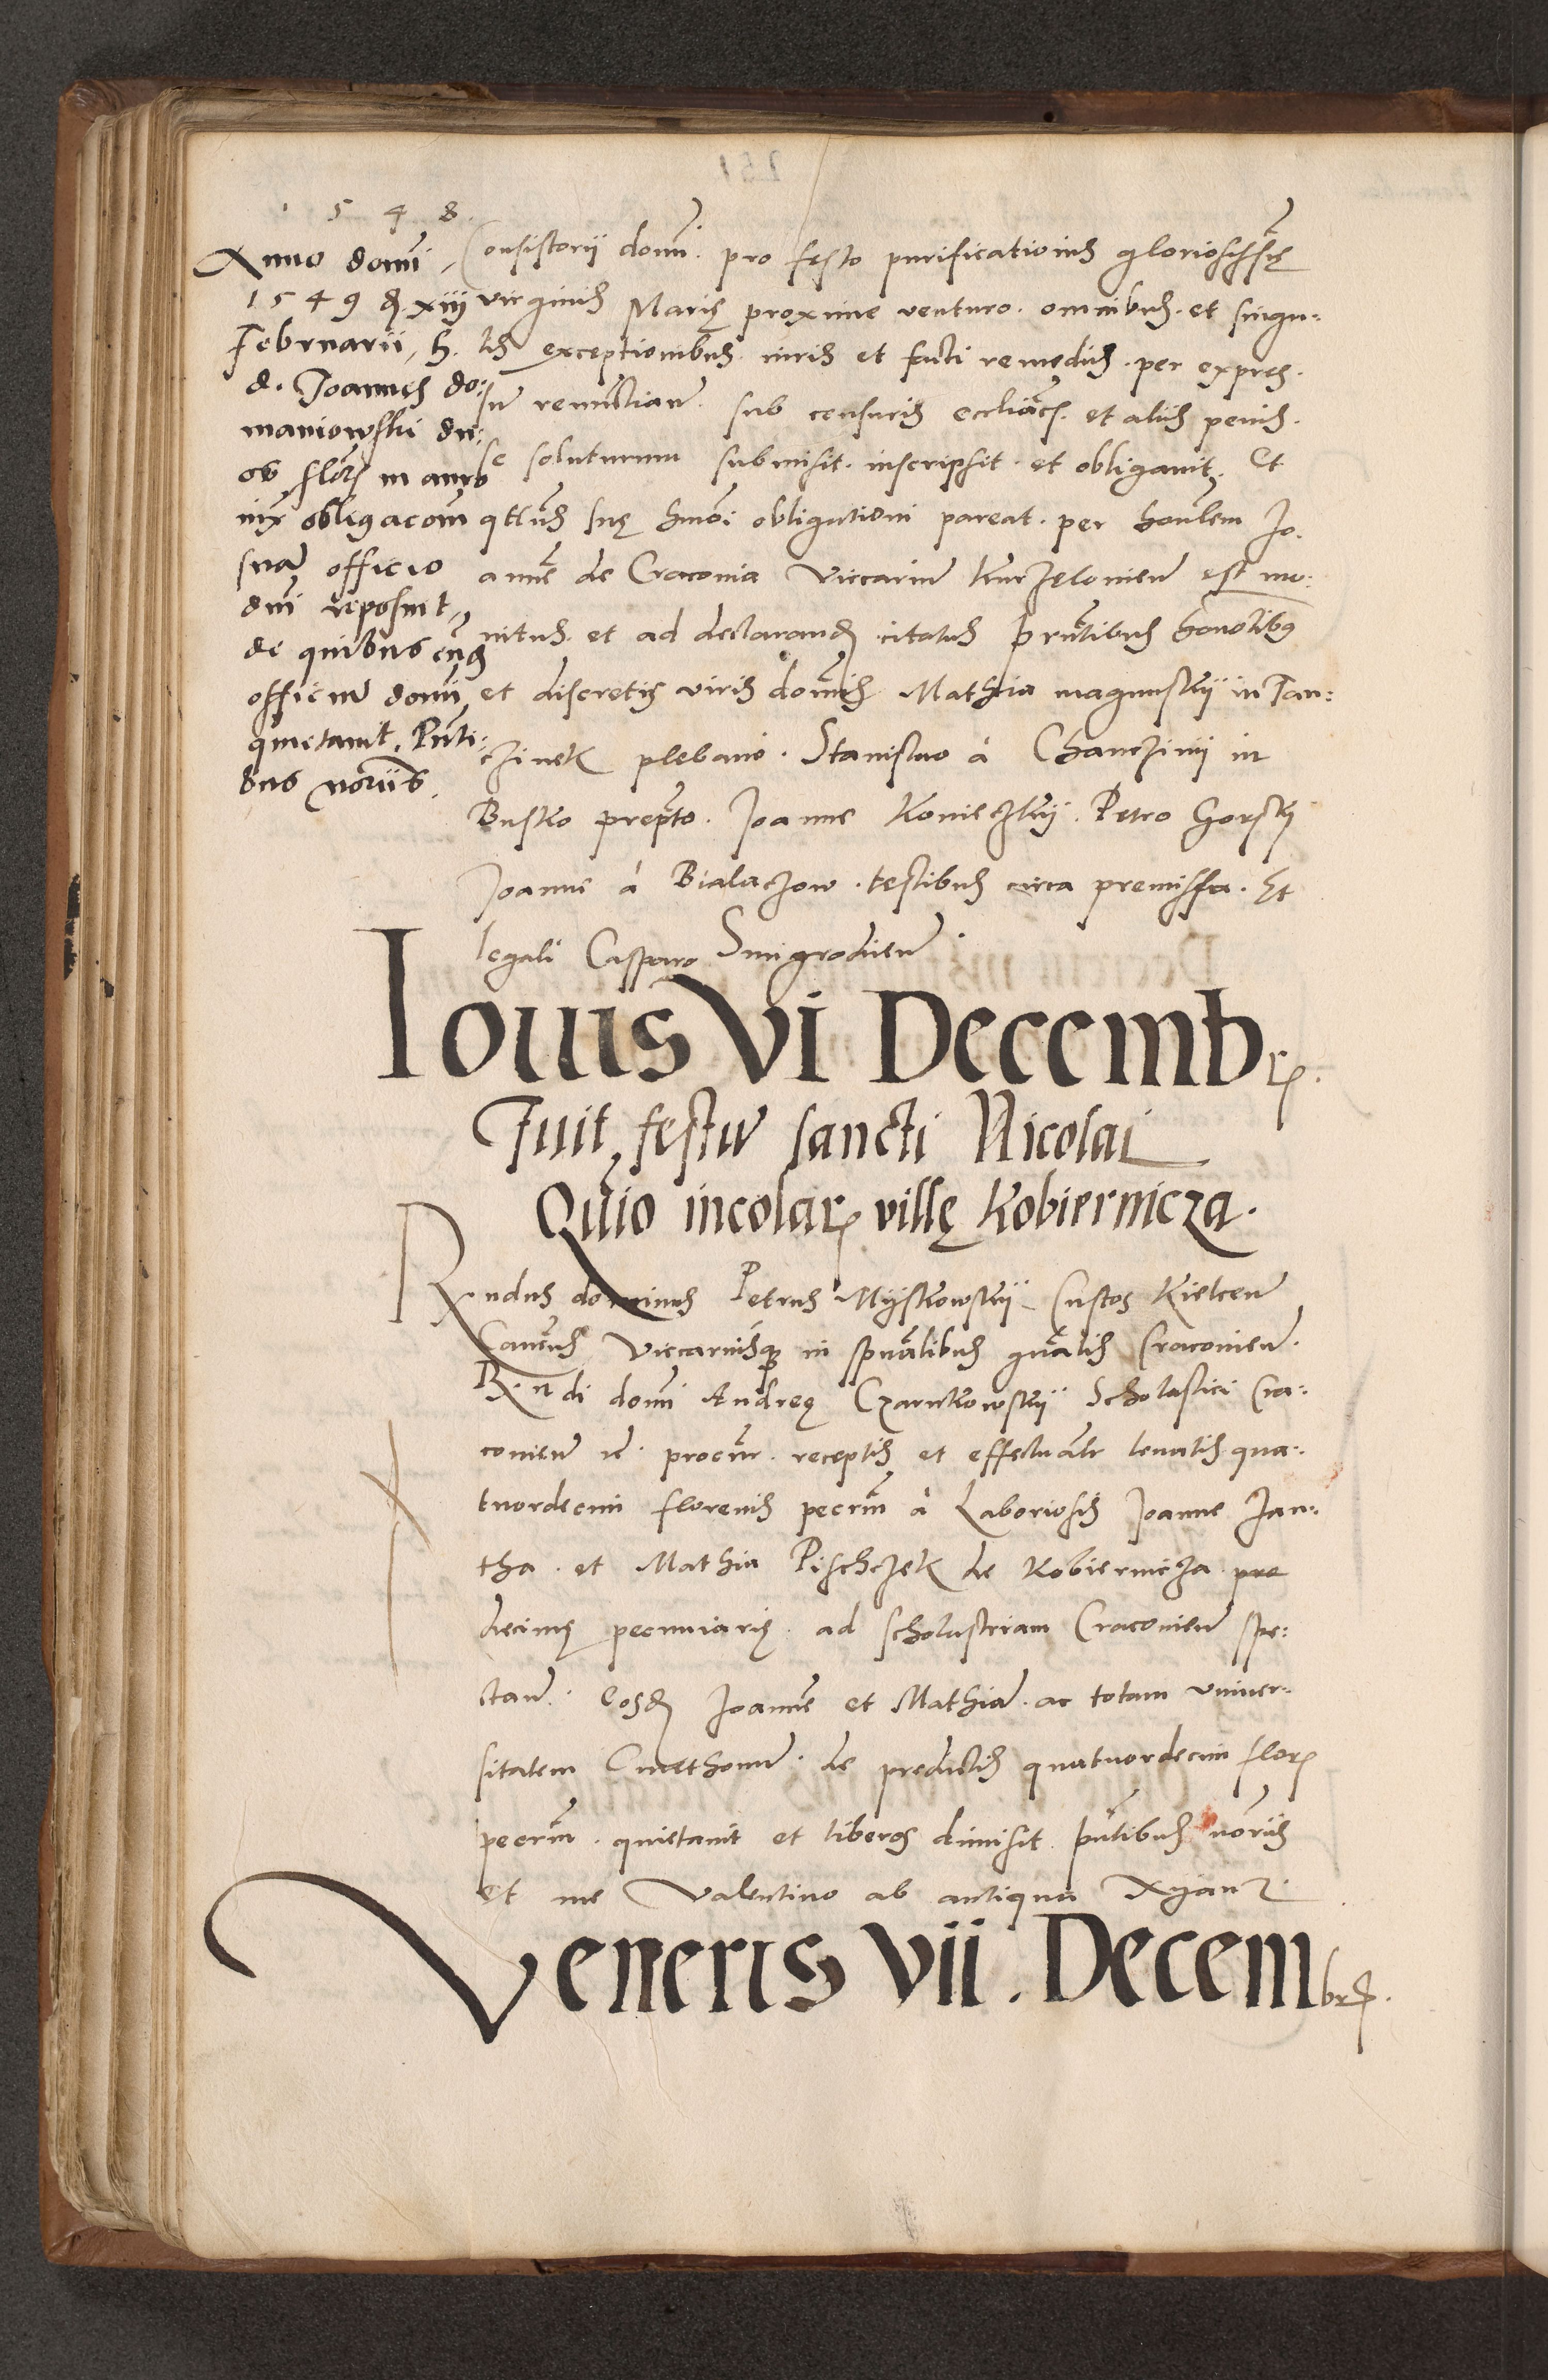 1548.
Anno domi
1549 d. xiij
Februarii, h.
d. Joannes Do:
maniowski du:
os flor in
nix obligacom
sua officio
dni reposuit,
de quibus
officiu domi
quietavit, Pnti:
bus notariis.
Consistorii domi. pro festo purificationis gloriosissime
virginis Marię proxime venturo. omnibus. et singu:
lis exceptionibus. iuris et facti remediis. per expres.
su renunctian. sub censuris eccliacs. et aliis penis.
se soluturum submisit. inscripsit. et obligavit, Et
qtenus suę hmoi obligationi pareat. per honlem Jo.
anne de Cracovia Viccarium Kurzelovien est mo:
nitus. et ad declarand citatus Prntibus honolibus
et discretis viris domis Mathia magnuskij in Jan:
czinek plebano. Stanislao à Chanczinij in
Busko prepto. Joanne Konieczkij. Petro Gorskj
Joanne à Bialaczow. testibus circa premissa. Et
legali Casparo Smigrodien.
Iouis VI Decembr.
Fuit festu sancti Nicolai
Quio incolar villę Kobiernicza.
R.ndus dominus Petrus Mijskowskij Custos Kielcen
Canens Viccariusque in spualibus gnalis Cracovien.
R.ndi domi Andreę Czarnkowskij Scholastici Cra:
covien rc. procur. receptis et effectualr levatis qua:
tuordecim florenis pecrm à Laboriosis Joanne Jan:
tha. et Mathia Pischczek de Kobiernicza pre
decimę pecuniarię. ad scholastriam Cracovien spe:
ctan. Eosd Joanne et Mathia. ac totam univer:
sitatem Cmethonu. de predictis quatuordecim flor
pecrm. quietavit et liberos dimisit Pntibus notriis
et me Valentino ab antiqua Xyanz.
Veneris VII. Decembr.